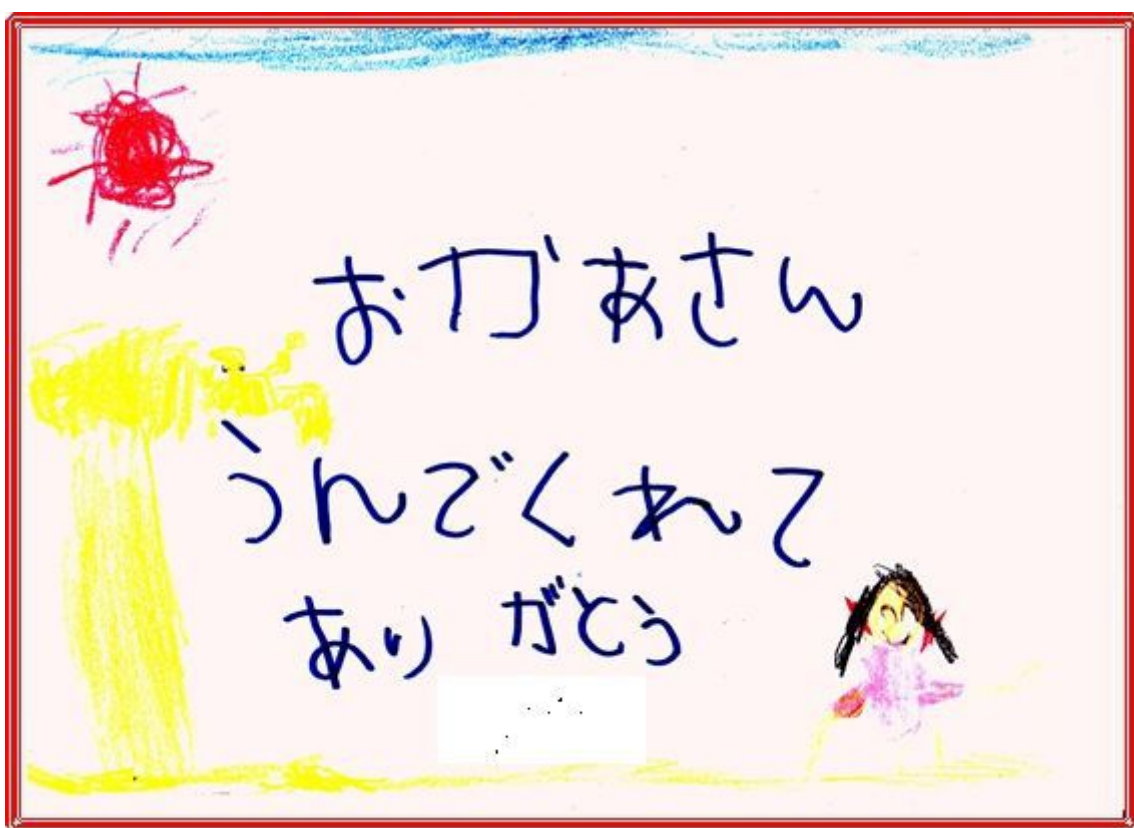 おかあさん
うんでくれて
ありがとう